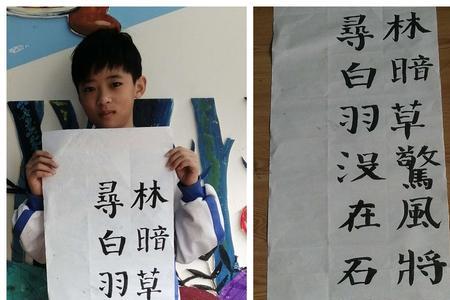 林暗草
尋白羽
林暗草驚風將
尋白羽没在石